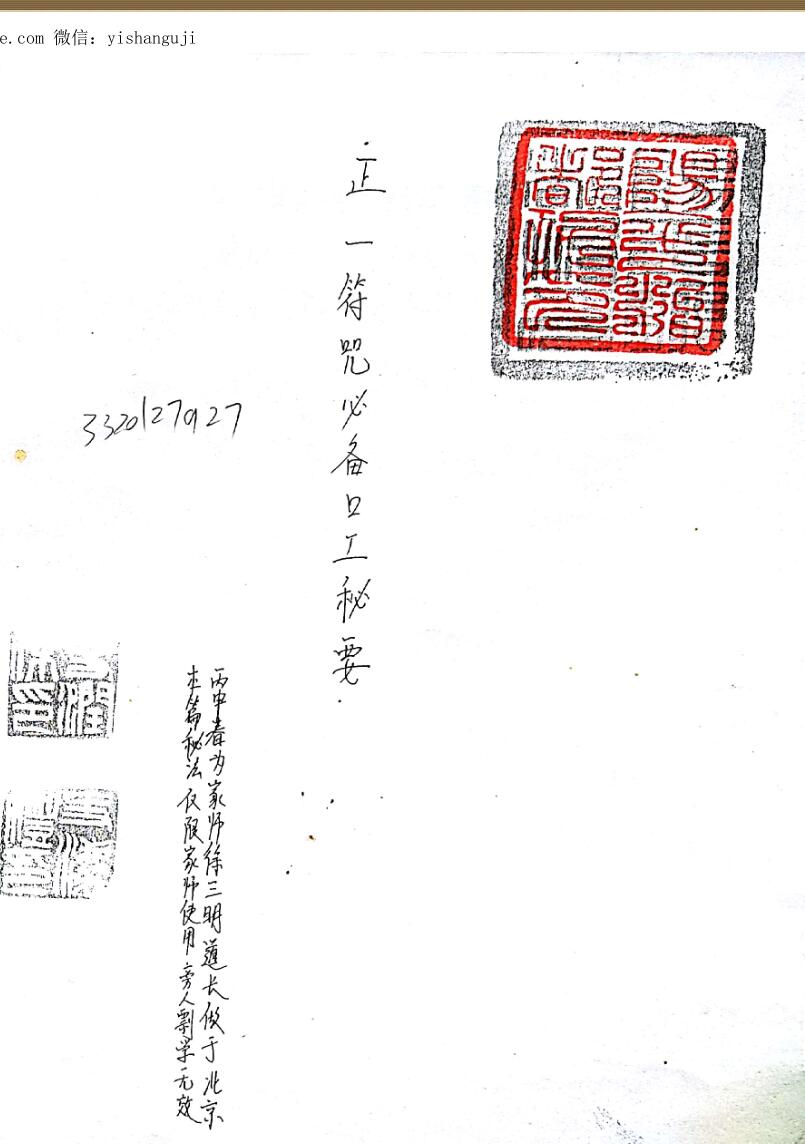 e.com 微信：yishanguji
正一符咒必备口工秘要
丙申春为家师徐三明道长做于北京
本篇秘法仅限家师使用旁人剽学无效
3320127927